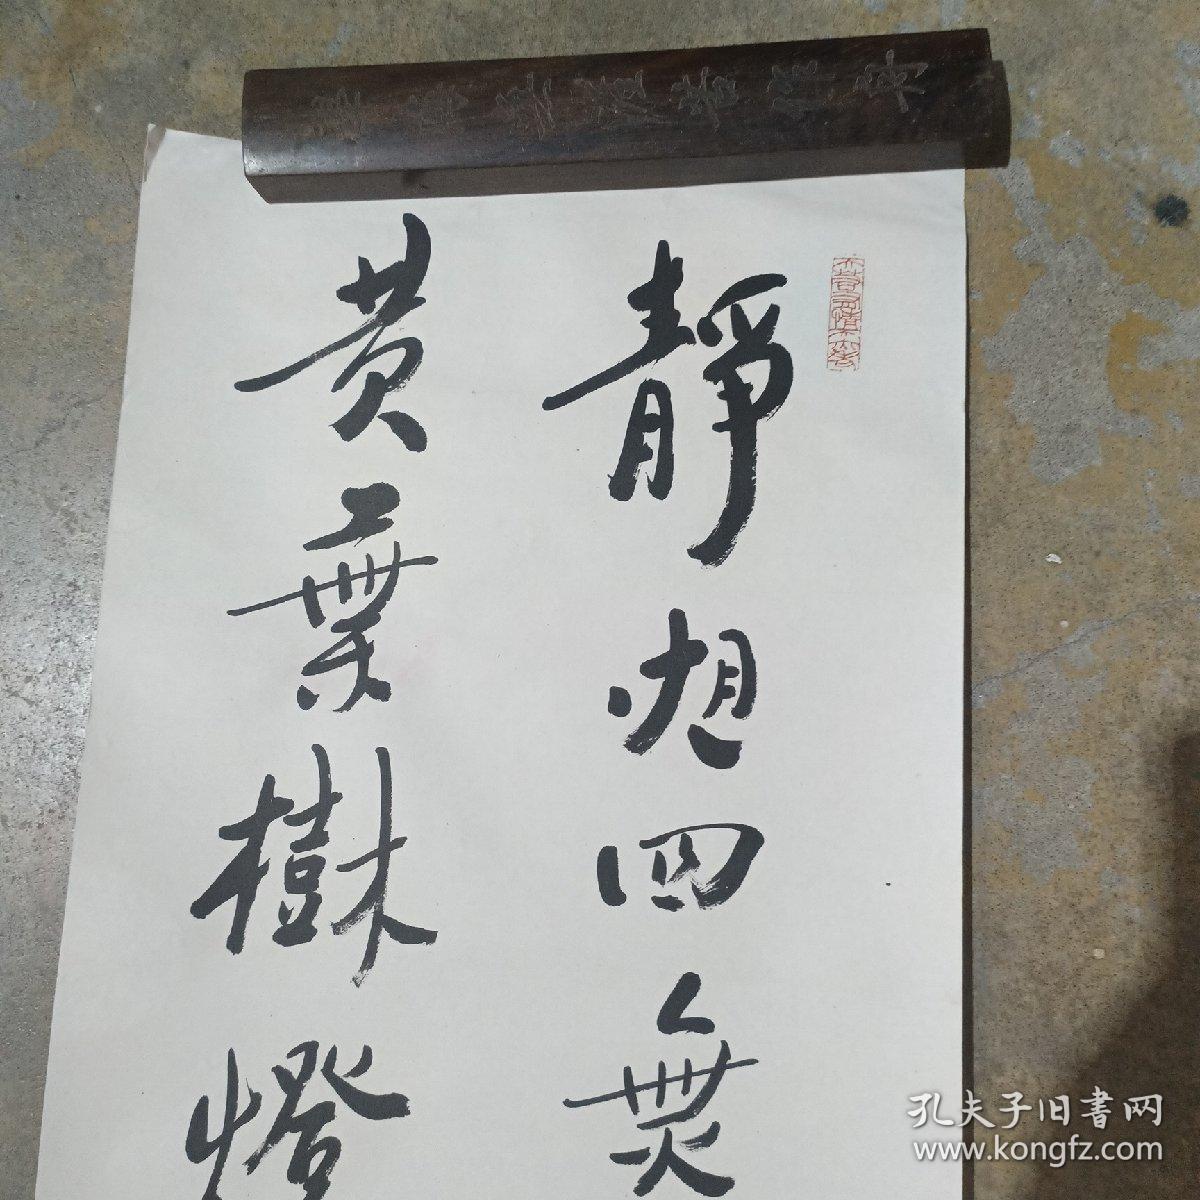 靜夜四無
黄葉樹燈
孔夫子旧書网
www.kongfz.com